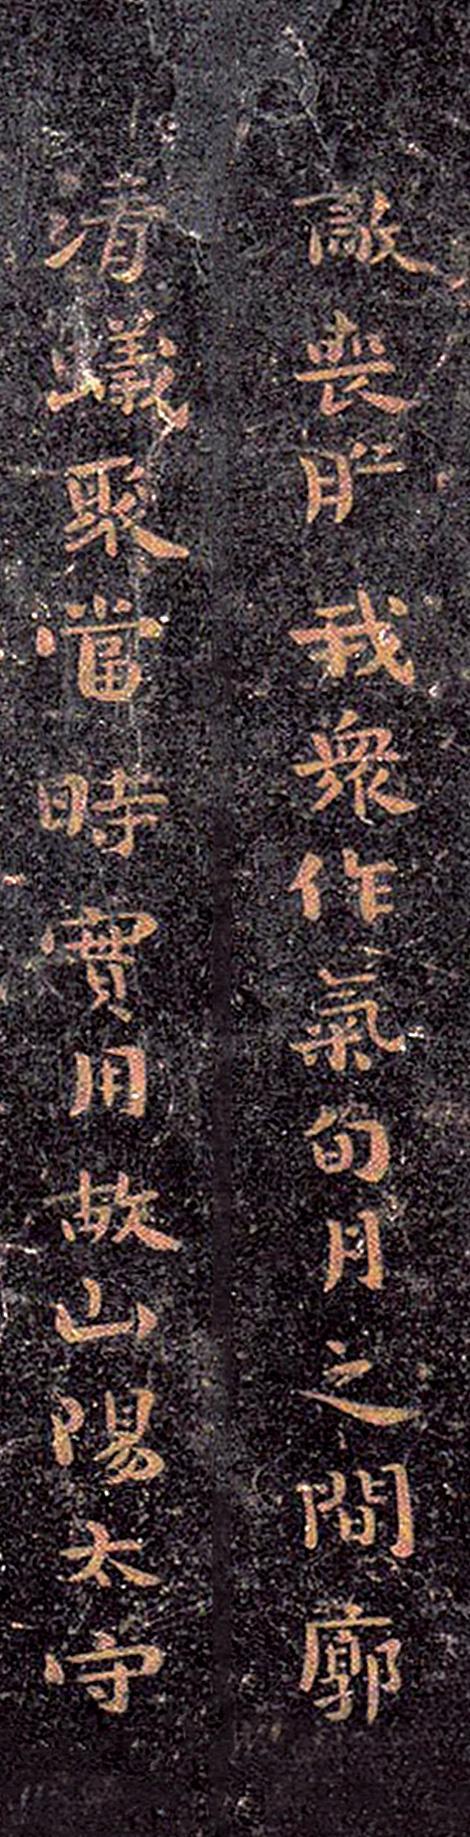 敵喪膽我眾作氣旬月之間廓
清蟻聚當時實用故山陽太守